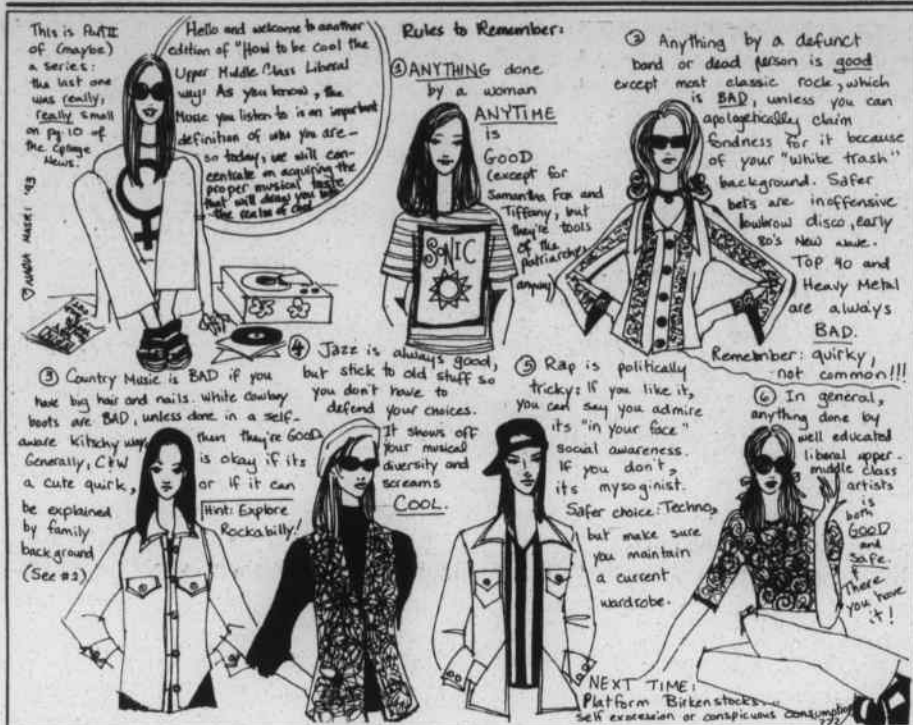 This is Part II
of (maybe)
a series:
the last one
was really,
really small
on pg. 10 of
the Cpage
News.
Hello and welcome to another
edition of "How to be cool the
Upper Middle Class Liberal
way: As you know, the
Music you listen to is an important
definition of who you are—
so today, we will con-
centrate on acquiring the
proper musical taste
that will draw you into
the realm of Cool
♡NADIA MASRI '93
Rules to Remember:
① ANYTHING done
by a woman
ANYTIME
is
GOOD
(except for
Samantha Fox and
Tiffany, but
they're tools
of the
patriarchy
anyway)
SONIC
② Anything by a defunct
band or dead person is good
except most classic rock, which
is BAD, unless you can
apologetically claim
fondness for it because
of your "white trash"
background. Safer
bets are inoffensive
lowbrow disco, early
80's New wave.
TOP 40 and
Heavy Metal
are always
BAD.
Remember: quirky,
not common!!!
③ Country Music is BAD if you
have big hair and nails. White cowboy
boots are BAD, unless done in a self-
aware kitschy way, then they're GOOD.
Generally, C&W is okay if its
a cute quirk, or if it can
be explained
by family
background
(See #2)
Hint: Explore
Rockabilly!
④ Jazz is always good,
but stick to old stuff so
you don't have to
defend your choices.
It shows off
your musical
diversity and
screams
COOL.
⑤ Rap is politically
tricky: If you like it,
you can say you admire
its "in your face"
social awareness.
If you don't,
its mysoginist.
Safer choice: Techno,
but make sure
you maintain
a current
wardrobe.
⑥ In general,
anything done by
well educated
liberal upper-
middle class
artists
is
both
GOOD
and
Safe.
There
you have
it!
NEXT TIME:
Platform Birkenstocks...
self expression or conspicuous consumption